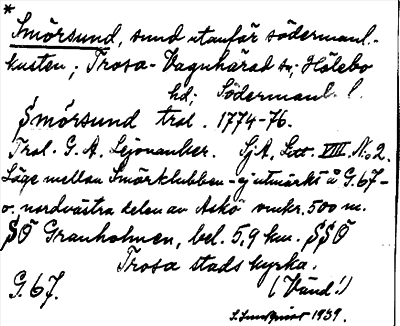 *
Smörsund, sund utanför södermanl.-
kusten; Trosa-Vagnhärad sn; Hölebo
hd; Södermanl. l.
Smörsund trol. 1774-76.
Trol. G. A. Lejonanker. SjA, Litt. VIII. No 2.
Läge mellan Smörklubben - ej utmärkt å G.67 -
o. nordvästra delen av Askö omkr. 500 m.
SO Granholmen, bel. 5,9 km. SSO
Trosa stads kyrka.
G.67. (Vänd!)
1939.